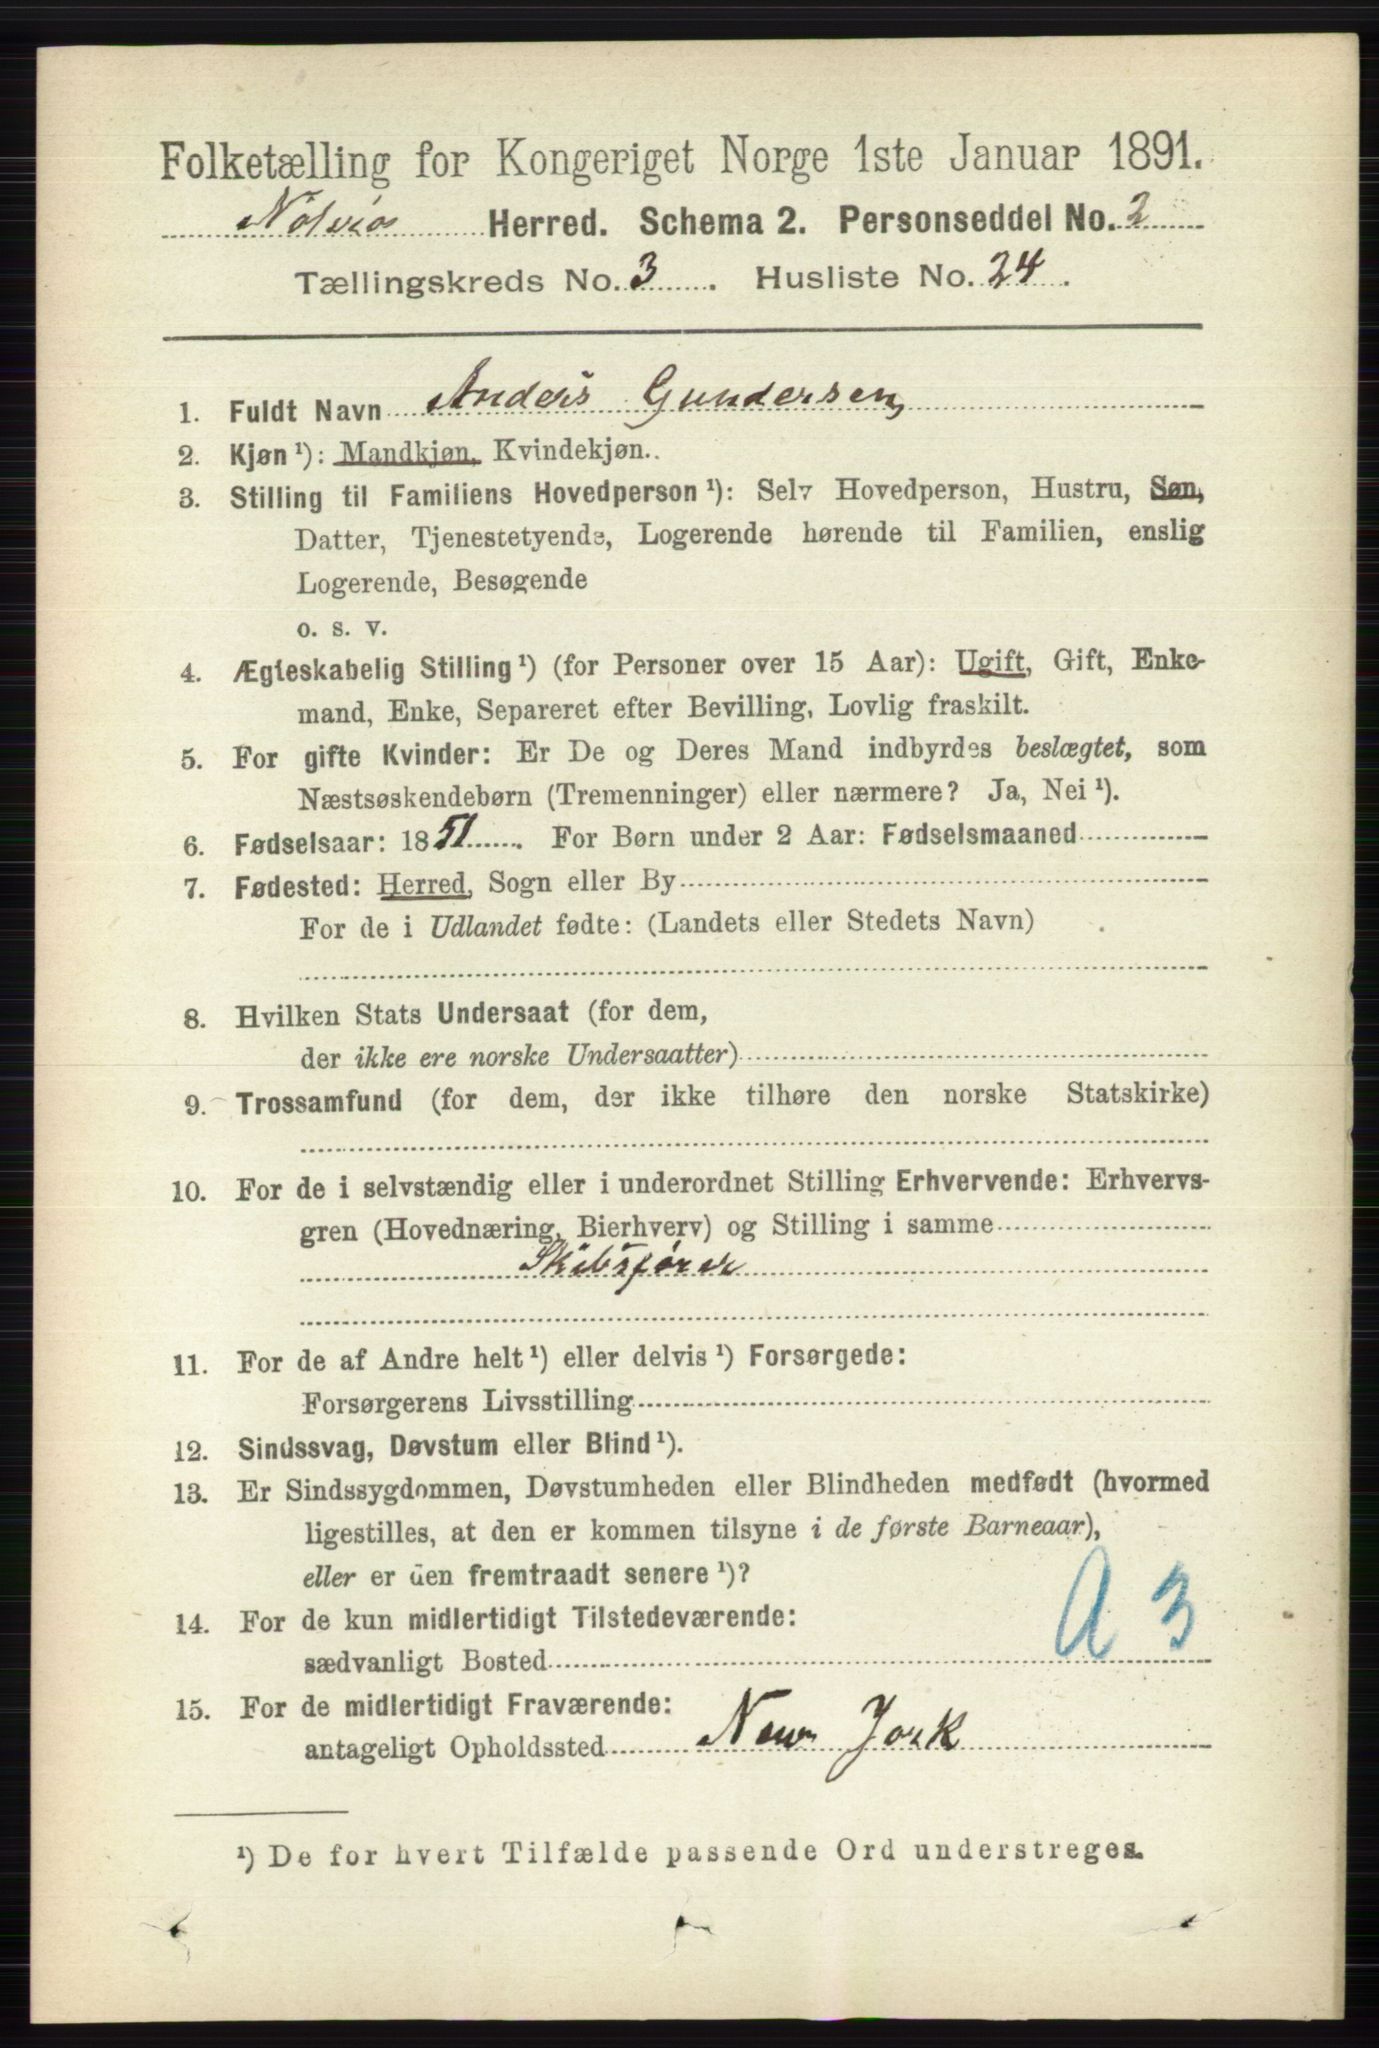 Folketælling for Kongeriget Norge 1ste Januar 1891.
Herred. Schema 2. Personseddel No. 2
Tællingskreds No. 3. Husliste No. 24.
1. Fuldt Navn Anders Gundersen
2. Kjøn ¹): Mandkjøn, Kvindekjøn..
3. Stilling til Familiens Hovedperson ¹): Selv Hovedperson, Hustru, Søn,
Datter, Tjenestetyende, Logerende hørende til Familien, enslig
Logerende, Besøgende
o. s. v.
4. Ægteskabelig Stilling ¹) (for Personer over 15 Aar): Ugift, Gift, Enke-
mand, Enke, Separeret efter Bevilling, Lovlig fraskilt.
5. For gifte Kvinder: Er De og Deres Mand indbyrdes beslægtet, som
Næstsøskendebørn (Tremenninger) eller nærmere? Ja, Nei ¹).
6. Fødselsaar: 1851. For Børn under 2 Aar: Fødselsmaaned
7. Fødested: Herred, Sogn eller By
For de i Udlandet fødte: (Landets eller Stedets Navn)
8. Hvilken Stats Undersaat (for dem,
der ikke ere norske Undersaatter)
9. Trossamfund (for dem, der ikke tilhøre den norske Statskirke)
10. For de i selvstændig eller i underordnet Stilling Erhvervende: Erhvervs-
gren (Hovednæring, Bierhverv) og Stilling i samme
Skibsfører
11. For de af Andre helt ¹) eller delvis ¹) Forsørgede:
Forsørgerens Livsstilling
12. Sindssvag, Døvstum eller Blind ¹).
13. Er Sindssygdommen, Døvstumheden eller Blindheden medfødt (hvormed
ligestilles, at den er kommen tilsyne i de første Barneaar),
eller er den fremtraadt senere ¹)?
A 3
14. For de kun midlertidigt Tilstedeværende:
sædvanligt Bosted
15. For de midlertidigt Fraværende:
antageligt Opholdssted New Jork
¹) De for hvert Tilfælde passende Ord understreges.